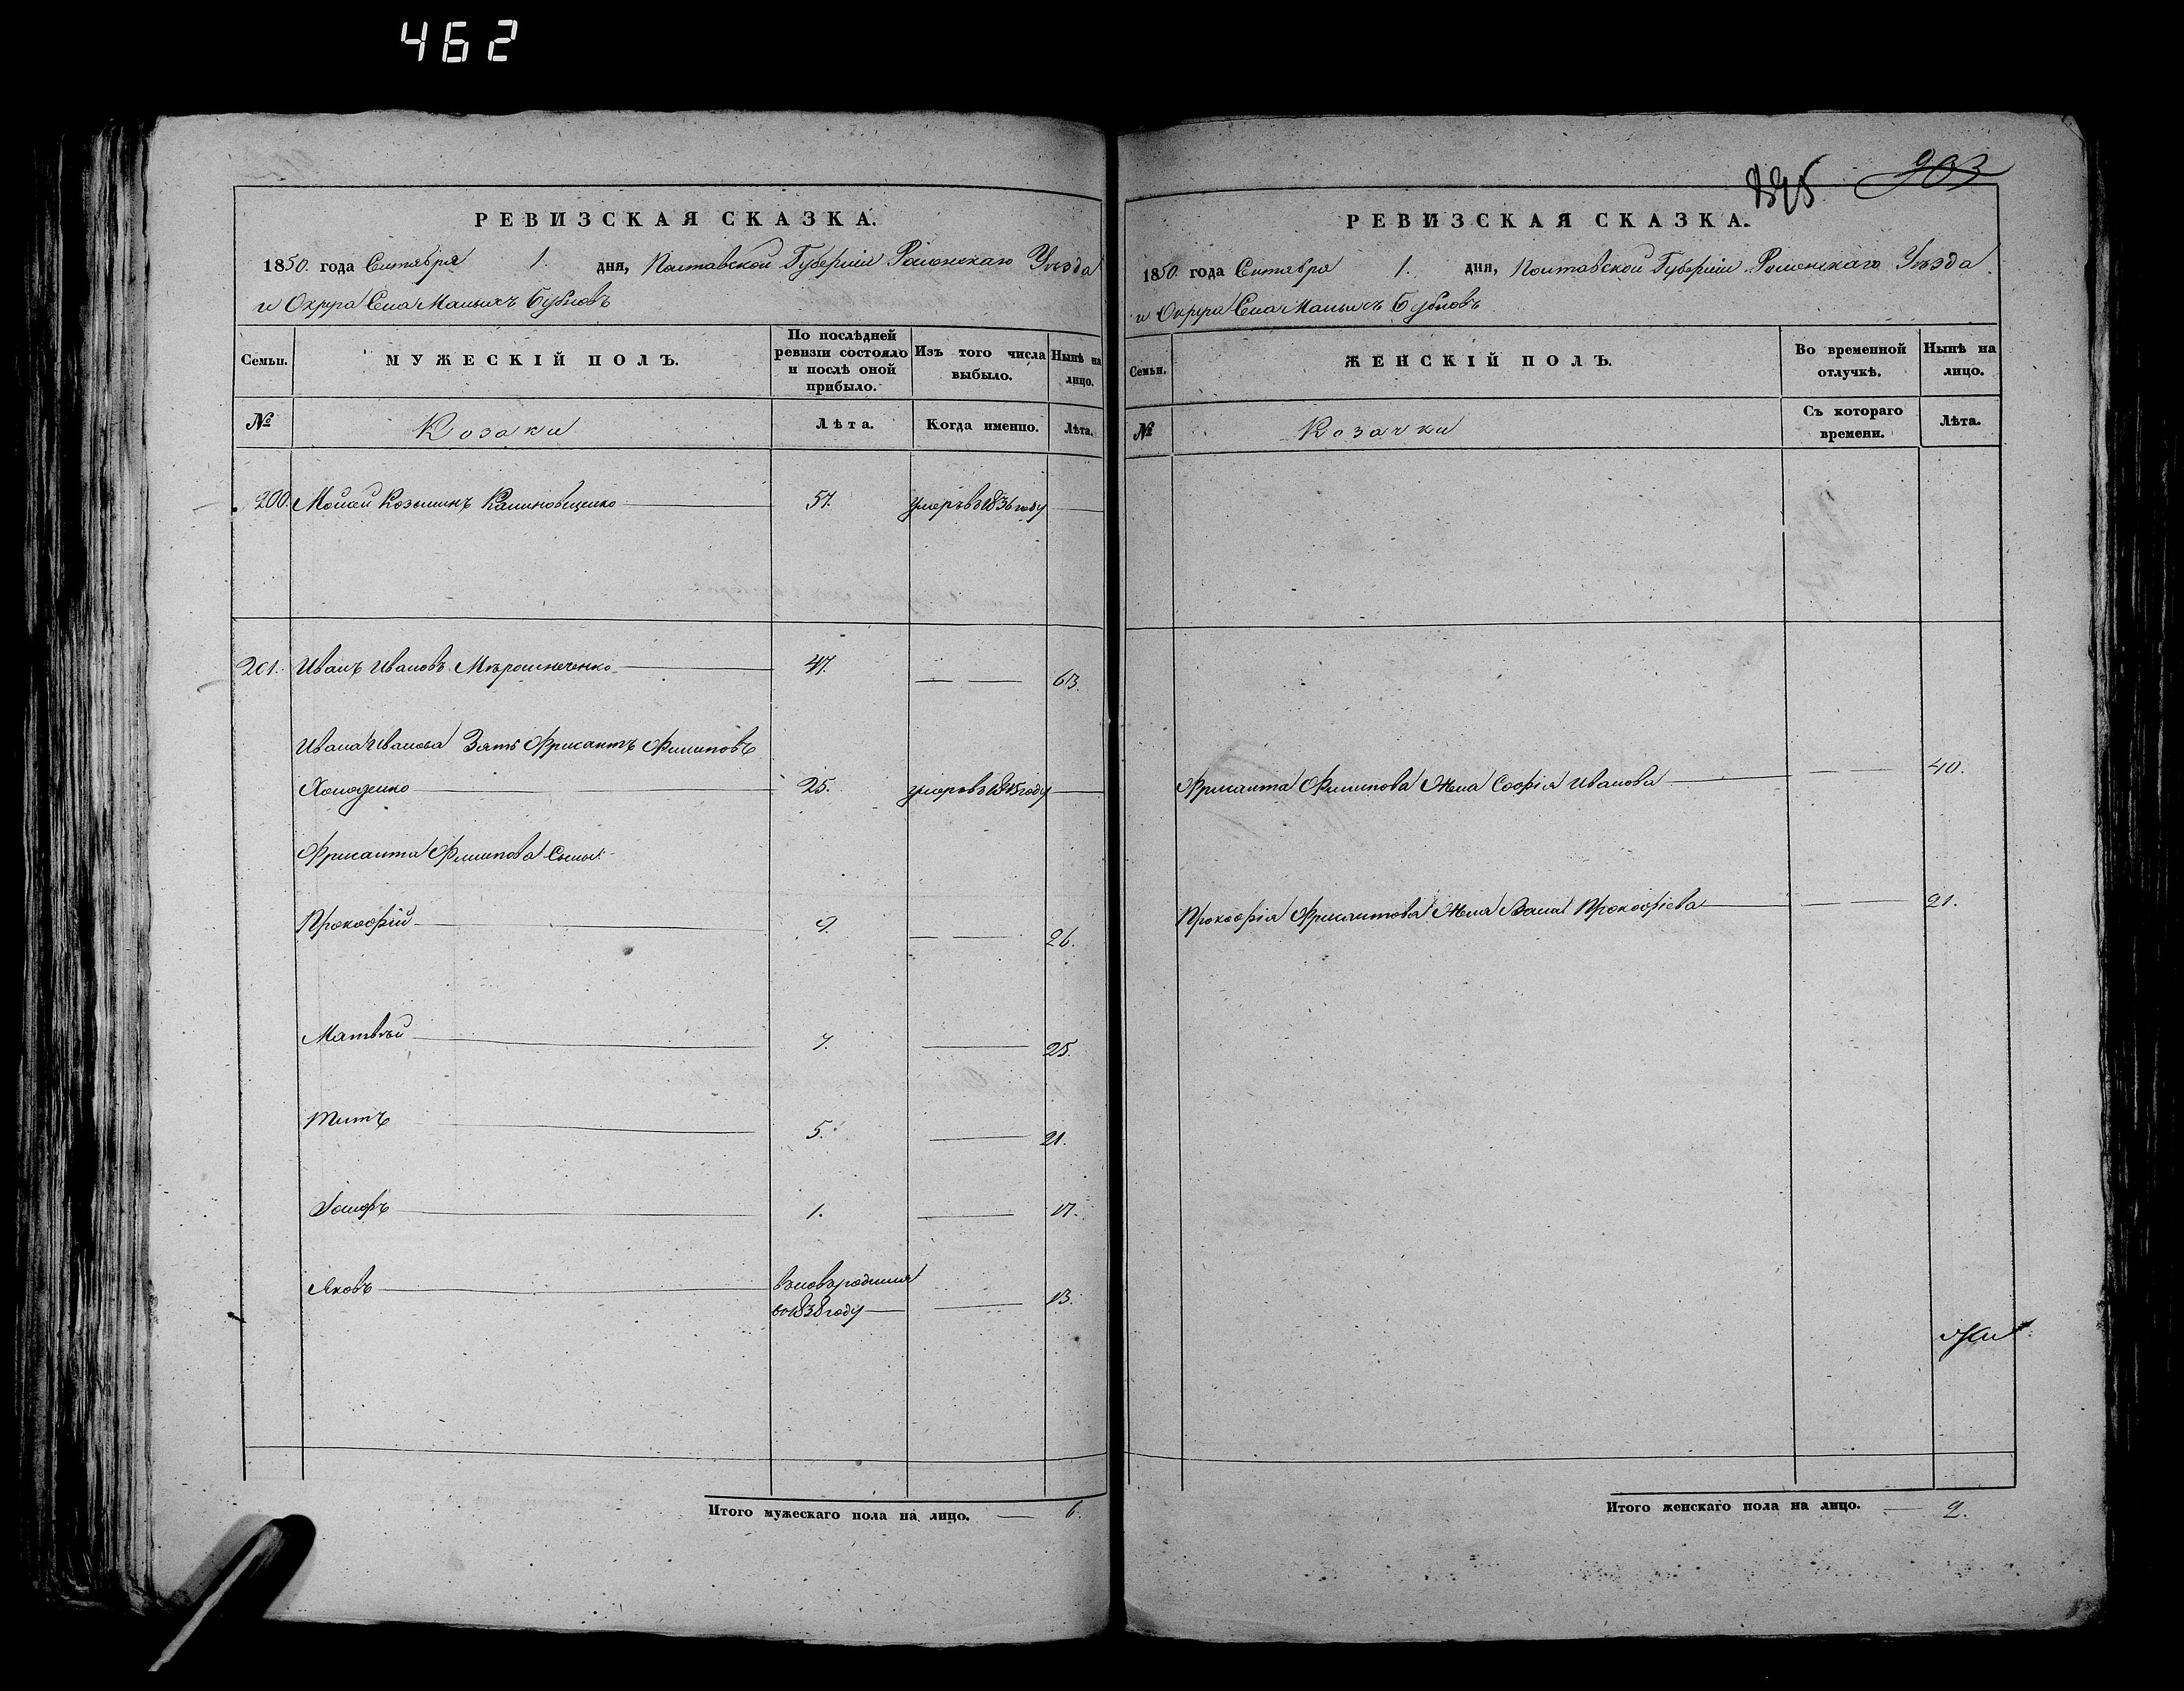 462
РЕВИЗСКАЯ СКАЗКА.
1850. года Сентября 1. дня, Полтавской Губерніи Роменскаго Уѣзда
и Округа Села Малыхъ Бубновъ
Семьи.
МУЖЕСКІЙ ПОЛЪ.
По послѣдней ревизіи состояло и послѣ оной прибыло.
Изъ того числа выбыло.
Нынѣ на лицо.
№
Козаки
Лѣта.
Когда именно.
Лѣта.
200. Мойсей Козьминъ Калиновщенко 57. умеръ въ 1836 году
201. Иванъ Ивановъ Мѣрошнеченко 47. 63.
Ивана Иванова Зять Фрисантъ Филиповъ
Холоденко 25. умеръ въ 1845 году
Фрисанта Филипова Сыны:
Прокофій 9. 26.
Матвѣй 7. 25.
Титъ 5. 21.
Іосифъ 1. 17.
Яковъ вновь родился 13.
въ 1838 году
Итого мужескаго пола на лицо. 6.
895 903
РЕВИЗСКАЯ СКАЗКА.
1850. года Сентября 1. дня, Полтавской Губерніи Роменскаго Уѣзда
и Округа Села Малыхъ Бубновъ
Семьи.
ЖЕНСКІЙ ПОЛЪ.
Во временной отлучкѣ.
Нынѣ на лицо.
№
Козачки
Съ котораго времени.
Лѣта.
Фрисанта Филипова Жена Софія Иванова 40.
Прокофія Фрисантова Жена Прокофіева 21.
Итого женскаго пола на лицо. 2.